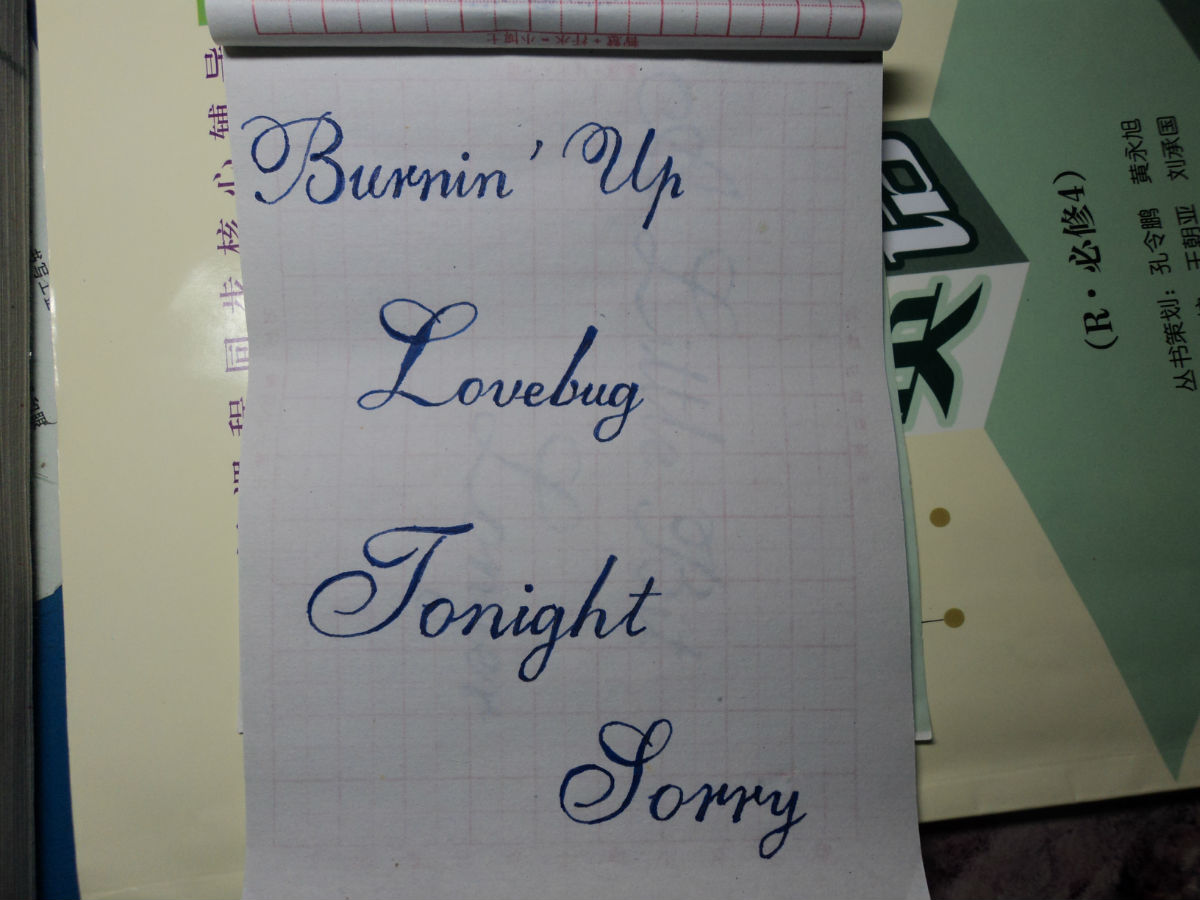 Burnin' Up
Lovebug
Tonight
Sorry
智慧+汗水=小博士
课程同步核心辅导
(R·必修4)
丛书策划:孔令鹏 黄永旭
王朝亚 刘承国